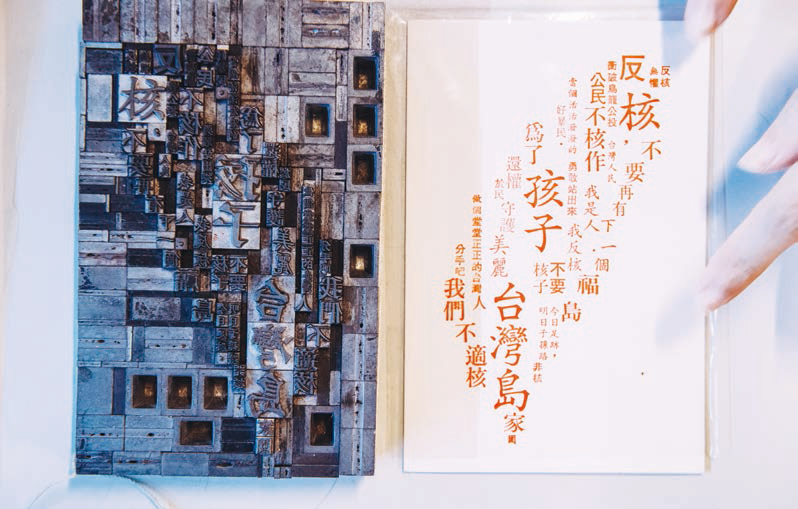 反核
無懼
反核，不要再有下一個福島
衝破烏龍公投
台灣人民
公民不核作
我是人．我反核
當個活活發發的
勇敢站出來
好暴民．
不要
核子
今日足跡，
明日子孫路
非核
爲了孩子
還權
於民
守護美麗台灣島家園
做個堂堂正正的台灣人
分手吧
我們不適核